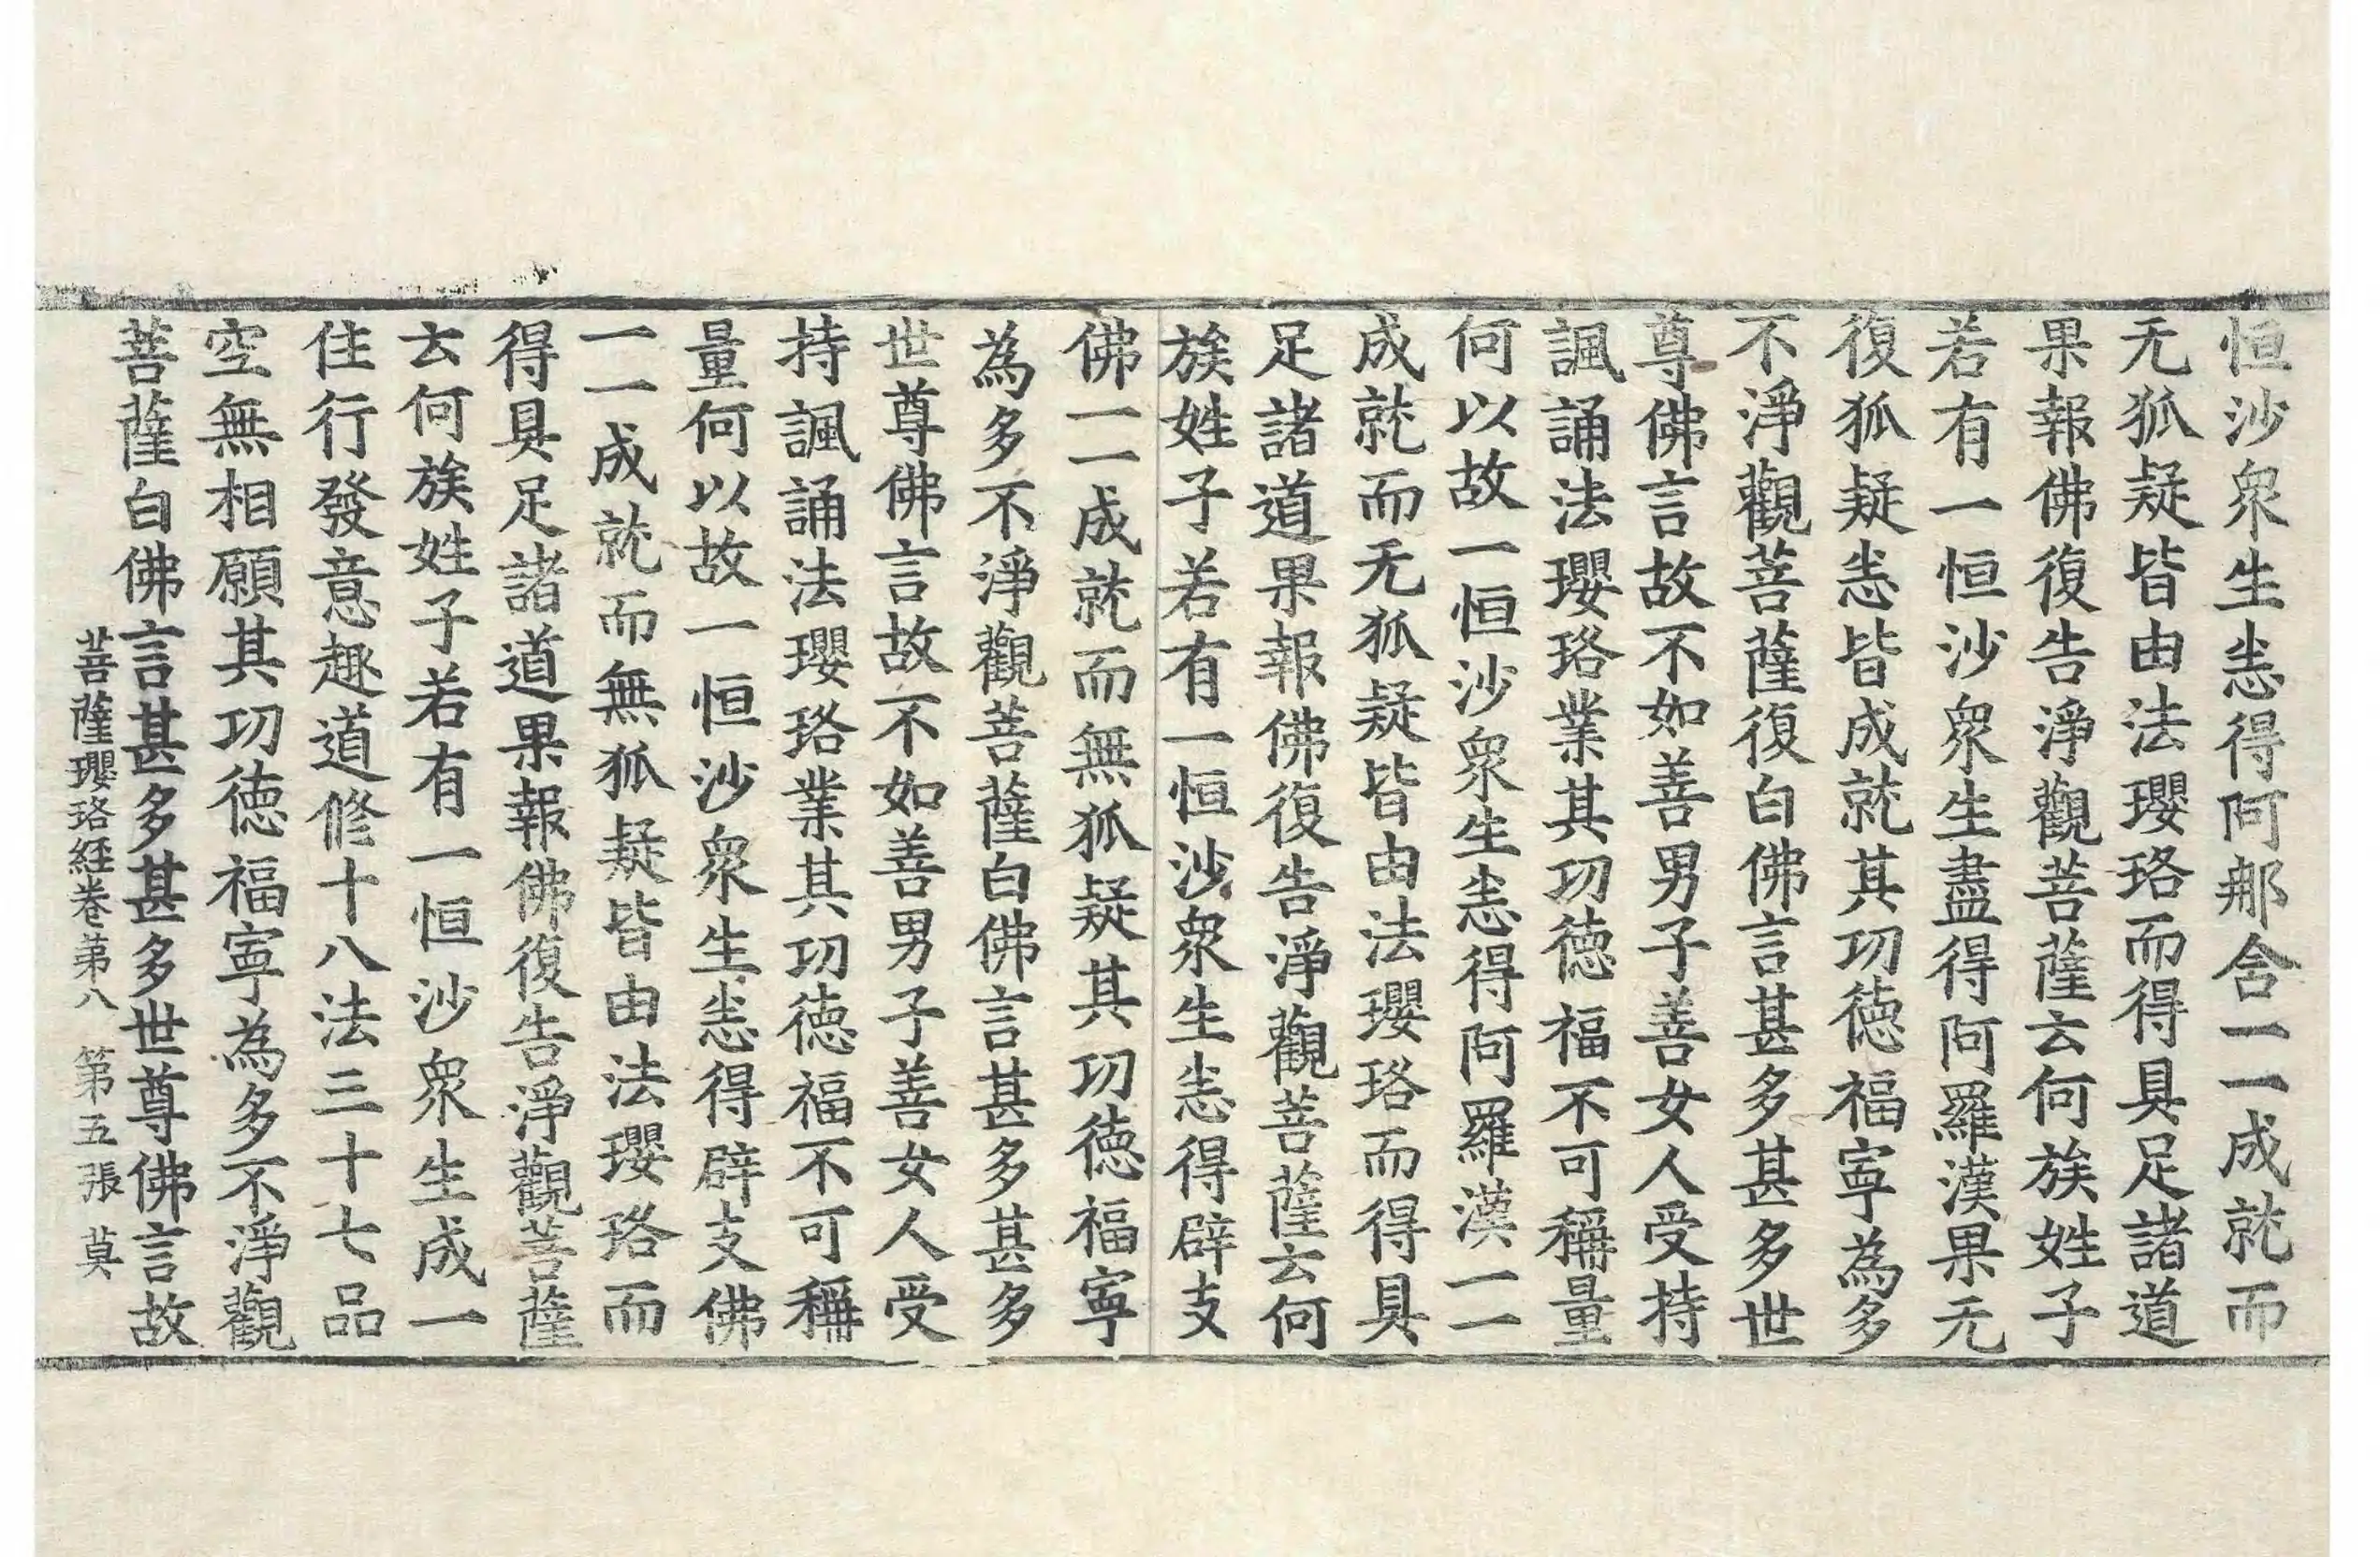 恒沙衆生恙得阿郍含一一成就而
无狐疑皆由法瓔珞而得具足諸道
果報佛復告淨觀菩薩云何族姓子
若有一恒沙衆生盡得阿羅漢果无
復狐疑恙皆成就其功德福寧為多
不淨觀菩薩復白佛言甚多甚多世
尊佛言故不如善男子善女人受持
諷誦法瓔珞業其功德福不可稱量
何以故一恒沙衆生恙得阿羅漢一一
成就而无狐疑皆由法瓔珞而得具
足諸道果報佛復告淨觀菩薩云何
族姓子若有一恒沙衆生恙得辟支
佛一一成就而無狐疑其功德福寧
為多不淨觀菩薩白佛言甚多甚多
世尊佛言故不如善男子善女人受
持諷誦法瓔珞業其功德福不可稱
量何以故一恒沙衆生恙得辟支佛
一一成就而無狐疑皆由法瓔珞而
得具足諸道果報佛復告淨觀菩薩
云何族姓子若有一恒沙衆生成一
住行發意趣道修十八法三十七品
空無相願其功德福寧為多不淨觀
菩薩白佛言甚多甚多世尊佛言故
菩薩瓔珞経卷第八 第五張 莫